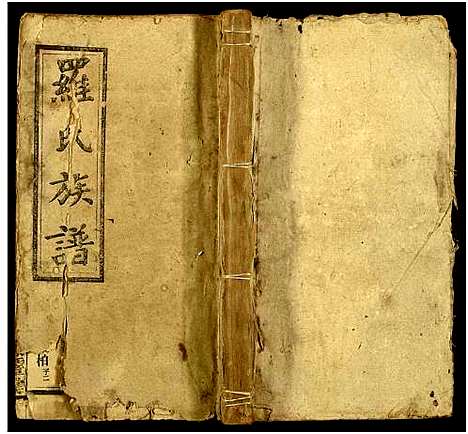 羅氏族譜
柏